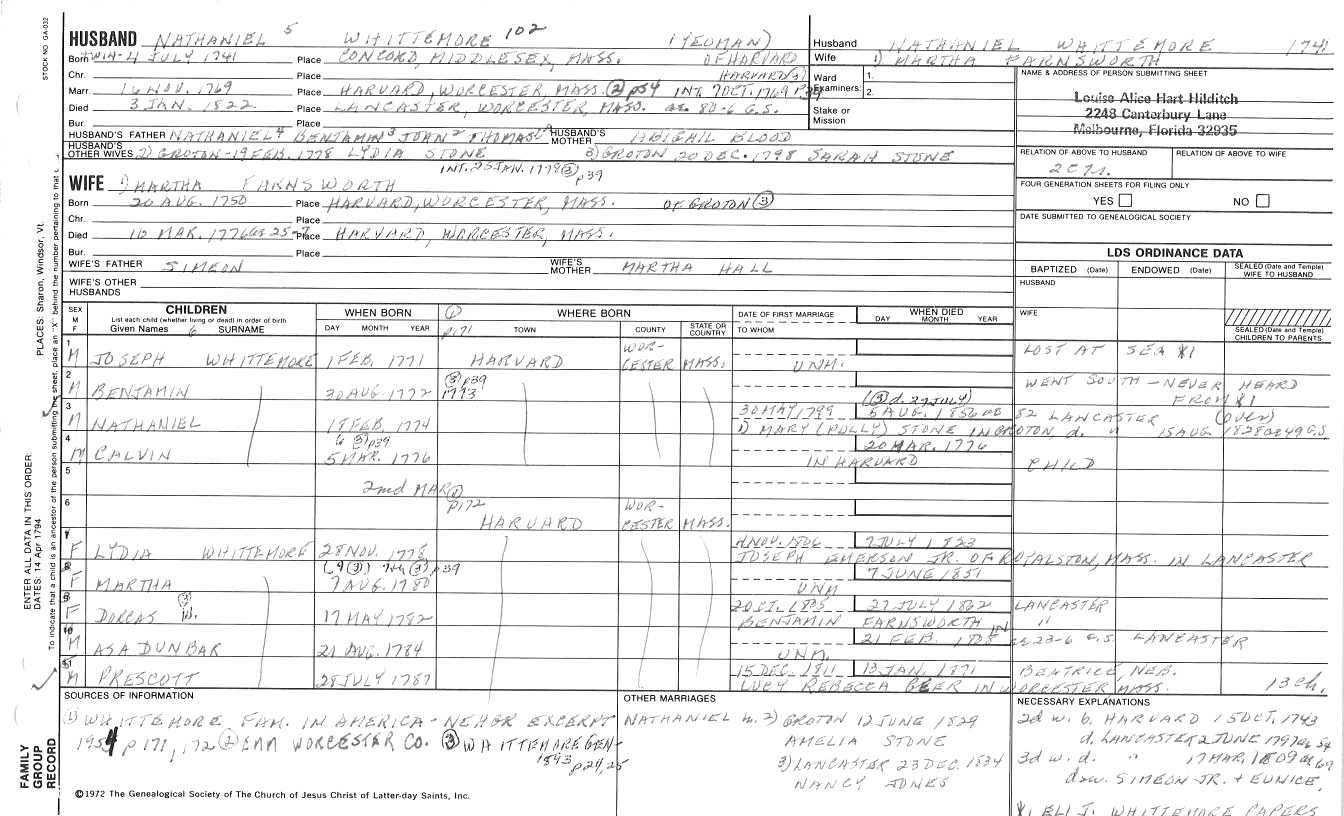 STOCK NO. GA-032
PLACES: Sharon, Windsor, Vt.
ENTER ALL DATA IN THIS ORDER
DATES: 14 Apr 1794
To indicate that a child is an ancestor of the person submitting the sheet, place an "X" behind the number pertaining to that
FAMILY GROUP RECORD
HUSBAND NATHANIEL 5 WHITTEMORE 102 (YEOMAN)
Born 4 JULY 1741 Place CONCORD, MIDDLESEX, MASS. OF HARVARD
Chr. Place HARVARD(3)
Marr. 16 NOV. 1769 Place HARVARD, WORCESTER, MASS. (2) p54 INT. 7 OCT. 1769 p39
Died 3 JAN. 1822 Place LANCASTER, WORCESTER, MASS. ae 80-6 G.S.
Bur. Place
HUSBAND'S FATHER NATHANIEL4 BENJAMIN3 JOHN2 THOMAS1 HUSBAND'S MOTHER ABIGAIL BLOOD
HUSBAND'S OTHER WIVES 2) GROTON-19 FEB. 1778 LYDIA STONE 3) GROTON 20 DEC. 1798 SARAH STONE
INT. 25 JAN. 1778 (3) p39
Husband NATHANIEL WHITTEMORE 1741
Wife 1) MARTHA FARNSWORTH
Ward Examiners: 1.
2.
Stake or Mission
NAME & ADDRESS OF PERSON SUBMITTING SHEET
Louise Alice Hart Hilditch
2248 Canterbury Lane
Melbourne, Florida 32935
RELATION OF ABOVE TO HUSBAND RELATION OF ABOVE TO WIFE
2C7r.
FOUR GENERATION SHEETS FOR FILING ONLY
YES NO
DATE SUBMITTED TO GENEALOGICAL SOCIETY
WIFE 1) MARTHA FARNSWORTH
Born 20 AUG. 1750 Place HARVARD, WORCESTER, MASS. OF GROTON (3)
Chr. Place
Died MAR. 1776 ae 25-7 Place HARVARD, WORCESTER, MASS.
Bur. Place
WIFE'S FATHER SIMEON WIFE'S MOTHER MARTHA HALL
WIFE'S OTHER HUSBANDS
LDS ORDINANCE DATA
BAPTIZED (Date) ENDOWED (Date) SEALED (Date and Temple) WIFE TO HUSBAND
HUSBAND
WIFE
SEALED (Date and Temple) CHILDREN TO PARENTS
SEX M F
CHILDREN
List each child (whether living or dead) in order of birth
Given Names 6 SURNAME
WHEN BORN
DAY MONTH YEAR
(1) p171
WHERE BORN
TOWN COUNTY STATE OR COUNTRY
DATE OF FIRST MARRIAGE
TO WHOM
WHEN DIED
DAY MONTH YEAR
1 M JOSEPH WHITTEMORE 1 FEB. 1771 HARVARD WORCESTER MASS. UNM. LOST AT SEA X1
2 M BENJAMIN 30 AUG. 1772 (3) p39 1773 WENT SOUTH - NEVER HEARD FROM X1
3 M NATHANIEL 18 FEB. 1774 30 MAY 1799 ((3) d. 27 JULY) 5 AUG. 1856 ae 82 LANCASTER (OVER)
1) MARY (POLLY) STONE IN GROTON, d. " 15 AUG. 1828 ae 49 G.S.
4 M CALVIN 6 (3) p39 5 MAR. 1776 20 MAR. 1776 IN HARVARD CHILD
5 2nd MAR (1) p172
6 HARVARD WORCESTER MASS.
7 F LYDIA WHITTEMORE 28 NOV. 1778 NOV. 1806 7 JULY 1823
JOSEPH EMERSON JR. OF ROYALSTON, MASS. IN LANCASTER
8 F MARTHA 7 AUG. 1780 (3) p39 UNM 7 JUNE 1851
9 F DORCAS (3) W. 17 MAY 1782 2 OCT. 1835 27 JULY 1862 LANCASTER
BENJAMIN FARNSWORTH IN "
10 M ASA DUNBAR 21 AUG. 1784 UNM. 21 FEB. 1808 ae 23-6 G.S. LANCASTER
11 M PRESCOTT 28 JULY 1787 15 DEC. 1811 13 JAN. 1871 BEATRICE, NEB.
LUCY REBECCA BEER IN WORCESTER MASS. 13 ch.
SOURCES OF INFORMATION
(1) WHITTEMORE FAM. IN AMERICA - NEHGR EXCERPT
1954 p 171, 172 (2) EMM WORCESTER CO. (3) WHITTEMORE GEN-
1893 p24,25
OTHER MARRIAGES
NATHANIEL m. 2) GROTON 12 JUNE 1829
AMELIA STONE
3) LANCASTER 23 DEC. 1834
NANCY JONES
NECESSARY EXPLANATIONS
2d w. b. HARVARD 15 OCT. 1743
d. LANCASTER 2 JUNE 1797 ae 54
3d w. d. " 17 MAR. 1809 ae
daw. SIMEON JR. + EUNICE.
X1 ELI J. WHITTEMORE PAPERS
©1972 The Genealogical Society of The Church of Jesus Christ of Latter-day Saints, Inc.